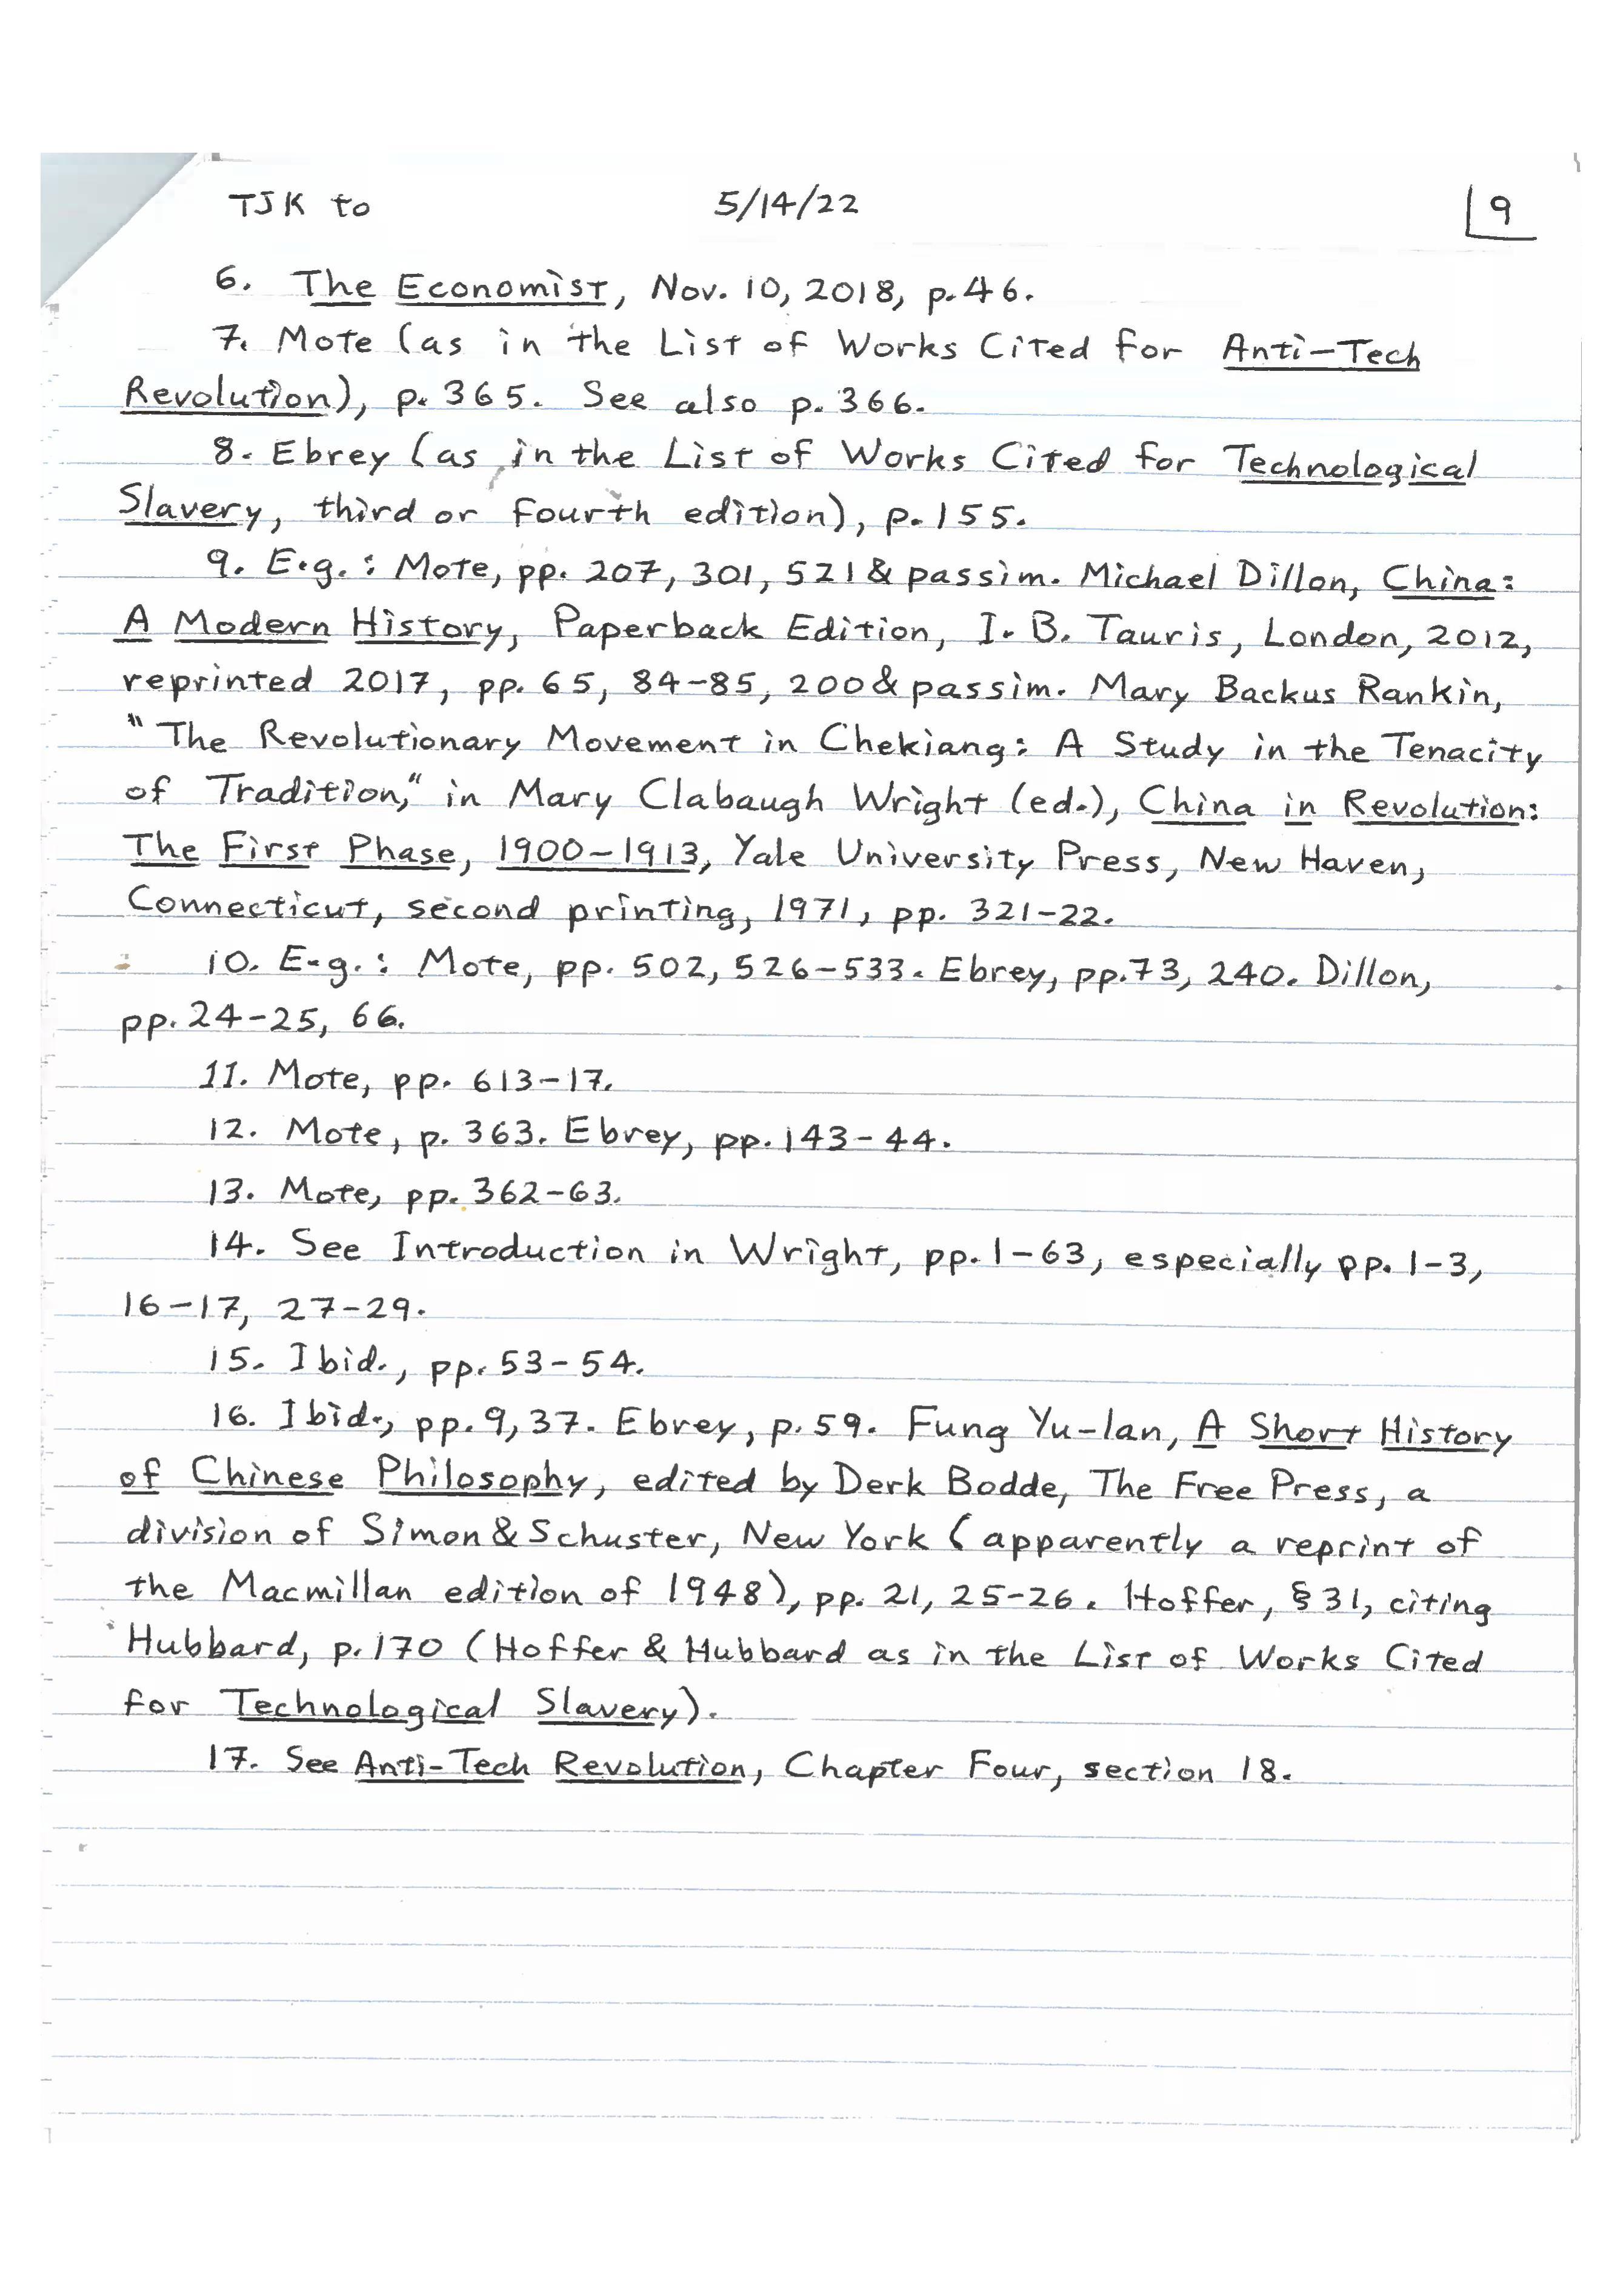 TJK to 5/14/22 9
6. The Economist, Nov. 10, 2018, p. 46.
7. Mote (as in the List of Works Cited for Anti-Tech
Revolution), p. 365. See also p. 366.
8. Ebrey (as in the List of Works Cited for Technological
Slavery, third or fourth edition), p. 155.
9. E.g.: Mote, pp. 207, 301, 521 & passim. Michael Dillon, China:
A Modern History, Paperback Edition, I. B. Tauris, London, 2012,
reprinted 2017, pp. 65, 84-85, 200 & passim. Mary Backus Rankin,
"The Revolutionary Movement in Chekiang: A Study in the Tenacity
of Tradition," in Mary Clabaugh Wright (ed.), China in Revolution:
The First Phase, 1900-1913, Yale University Press, New Haven,
Connecticut, second printing, 1971, pp. 321-22.
10. E.g.: Mote, pp. 502, 526-533. Ebrey, pp. 73, 240. Dillon,
pp. 24-25, 66.
11. Mote, pp. 613-17.
12. Mote, p. 363. Ebrey, pp. 143-44.
13. Mote, pp. 362-63.
14. See Introduction in Wright, pp. 1-63, especially pp. 1-3,
16-17, 27-29.
15. Ibid., pp. 53-54.
16. Ibid., pp. 9, 37. Ebrey, p. 59. Fung Yu-lan, A Short History
of Chinese Philosophy, edited by Derk Bodde, The Free Press, a
division of Simon & Schuster, New York (apparently a reprint of
the Macmillan edition of 1948), pp. 21, 25-26. Hoffer, § 31, citing
Hubbard, p. 170 (Hoffer & Hubbard as in the List of Works Cited
for Technological Slavery).
17. See Anti-Tech Revolution, Chapter Four, section 18.